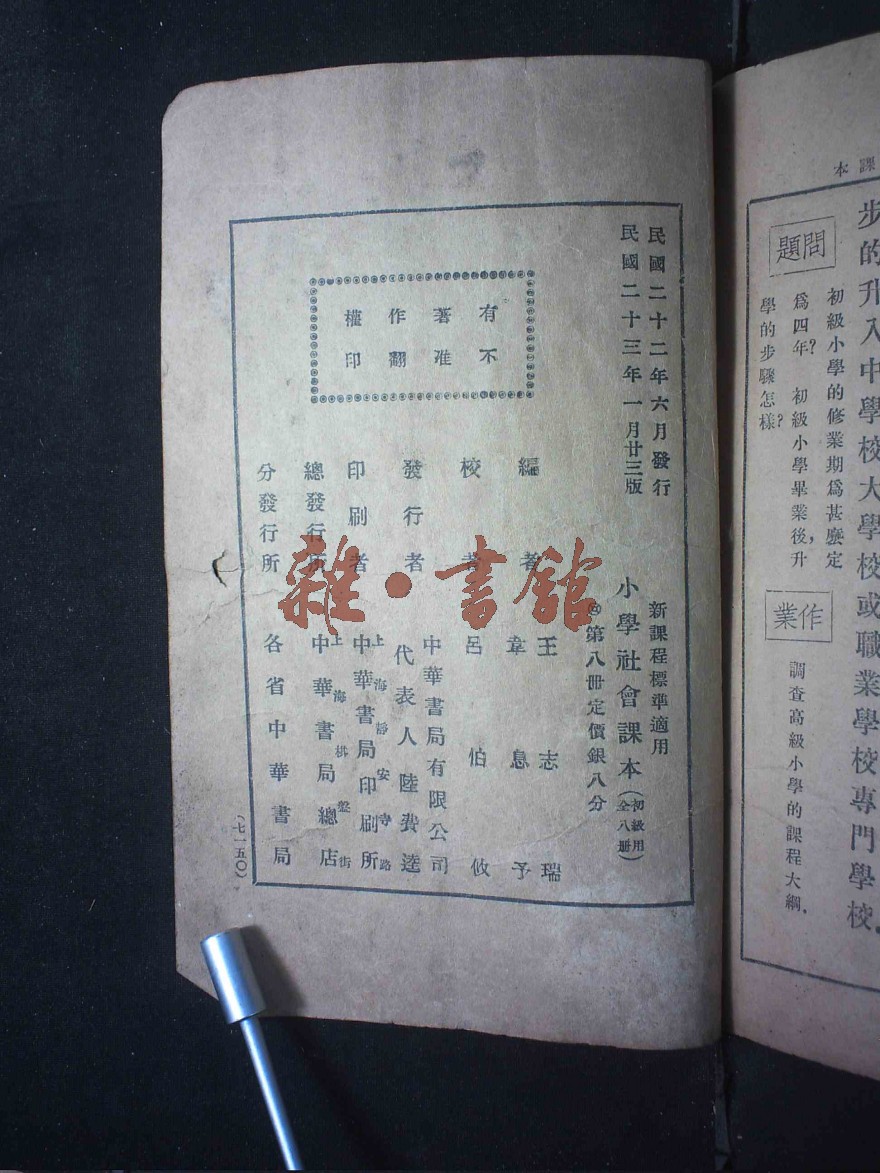 課本
步的升入中學校大學校或職業學校專門學校.
問題
初級小學的修業期爲甚麽定
爲四年? 初級小學畢業後,升
學的步驟怎樣?
作業
調查高級小學的課程大綱.
民國二十二年六月發行
民國二十三年一月廿三版
有著作權
不准翻印
新課程標準適用
小學社會課本(初級用 全八册)
第八册定價銀八分
編者 王志瑞
章息予
校者 呂伯攸
發行者 中華書局有限公司
代表人 陸費逵
印刷者 上海靜安寺路
中華書局印刷所
總發行所 上海棋盤街
中華書局總店
分發行所 各省中華書局
(七一五〇)
雜·書館